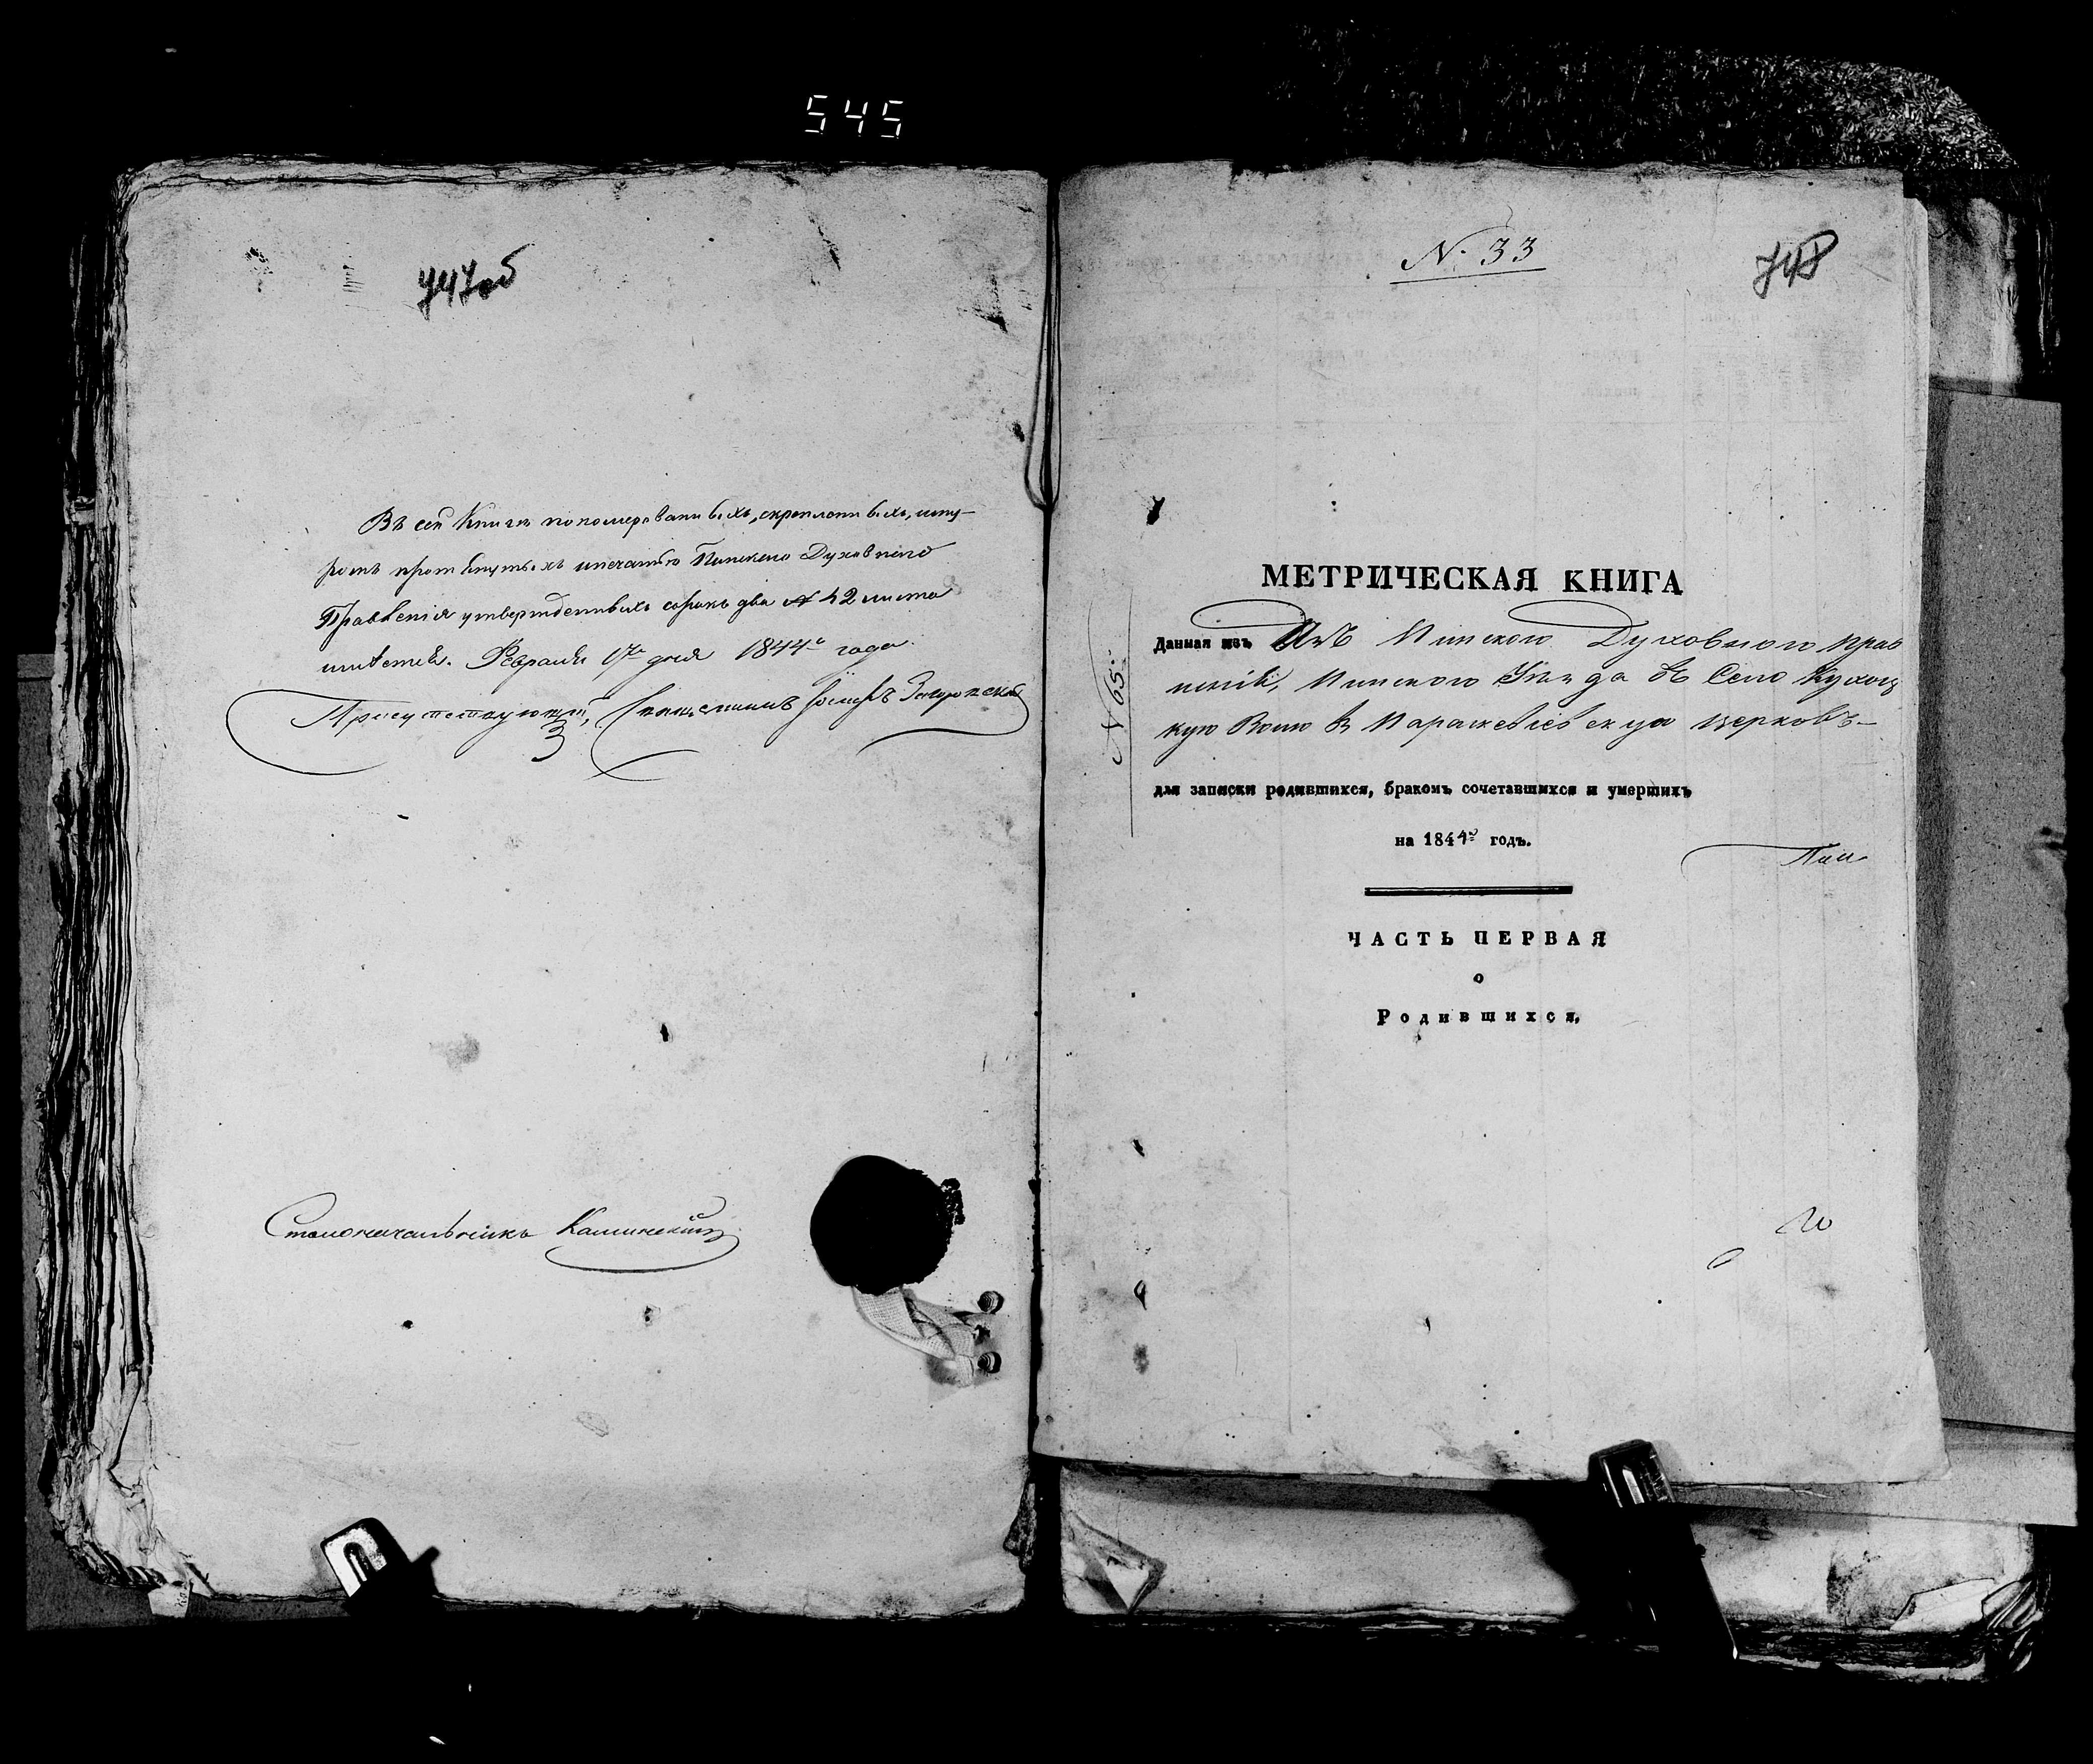 545
747об
Въ сей Книгѣ пономерованныхъ, скрепленныхъ, шну-
ромъ протянутыхъ и печатью Пинскаго Духовнаго
Правленія утвержденныхъ сорокъ два № 42 листа
имѣетъ. Февраля 17го дня 1844го года
Присутствующій, Священникъ Іосифъ Загоровскій
Столоначальникъ Калинскій
N. 33
748
N 65.
МЕТРИЧЕСКАЯ КНИГА
Данная изъ Изъ Пинского Духовного прав
ленія, Пинского Уѣзда въ Село Кухоц
кую Волю въ Параскевіевскую церковъ
для записки родившихся, бракомъ сочетавшихся и умершихъ
на 1844й годъ.
ЧАСТЬ ПЕРВАЯ
о
Родившихся.